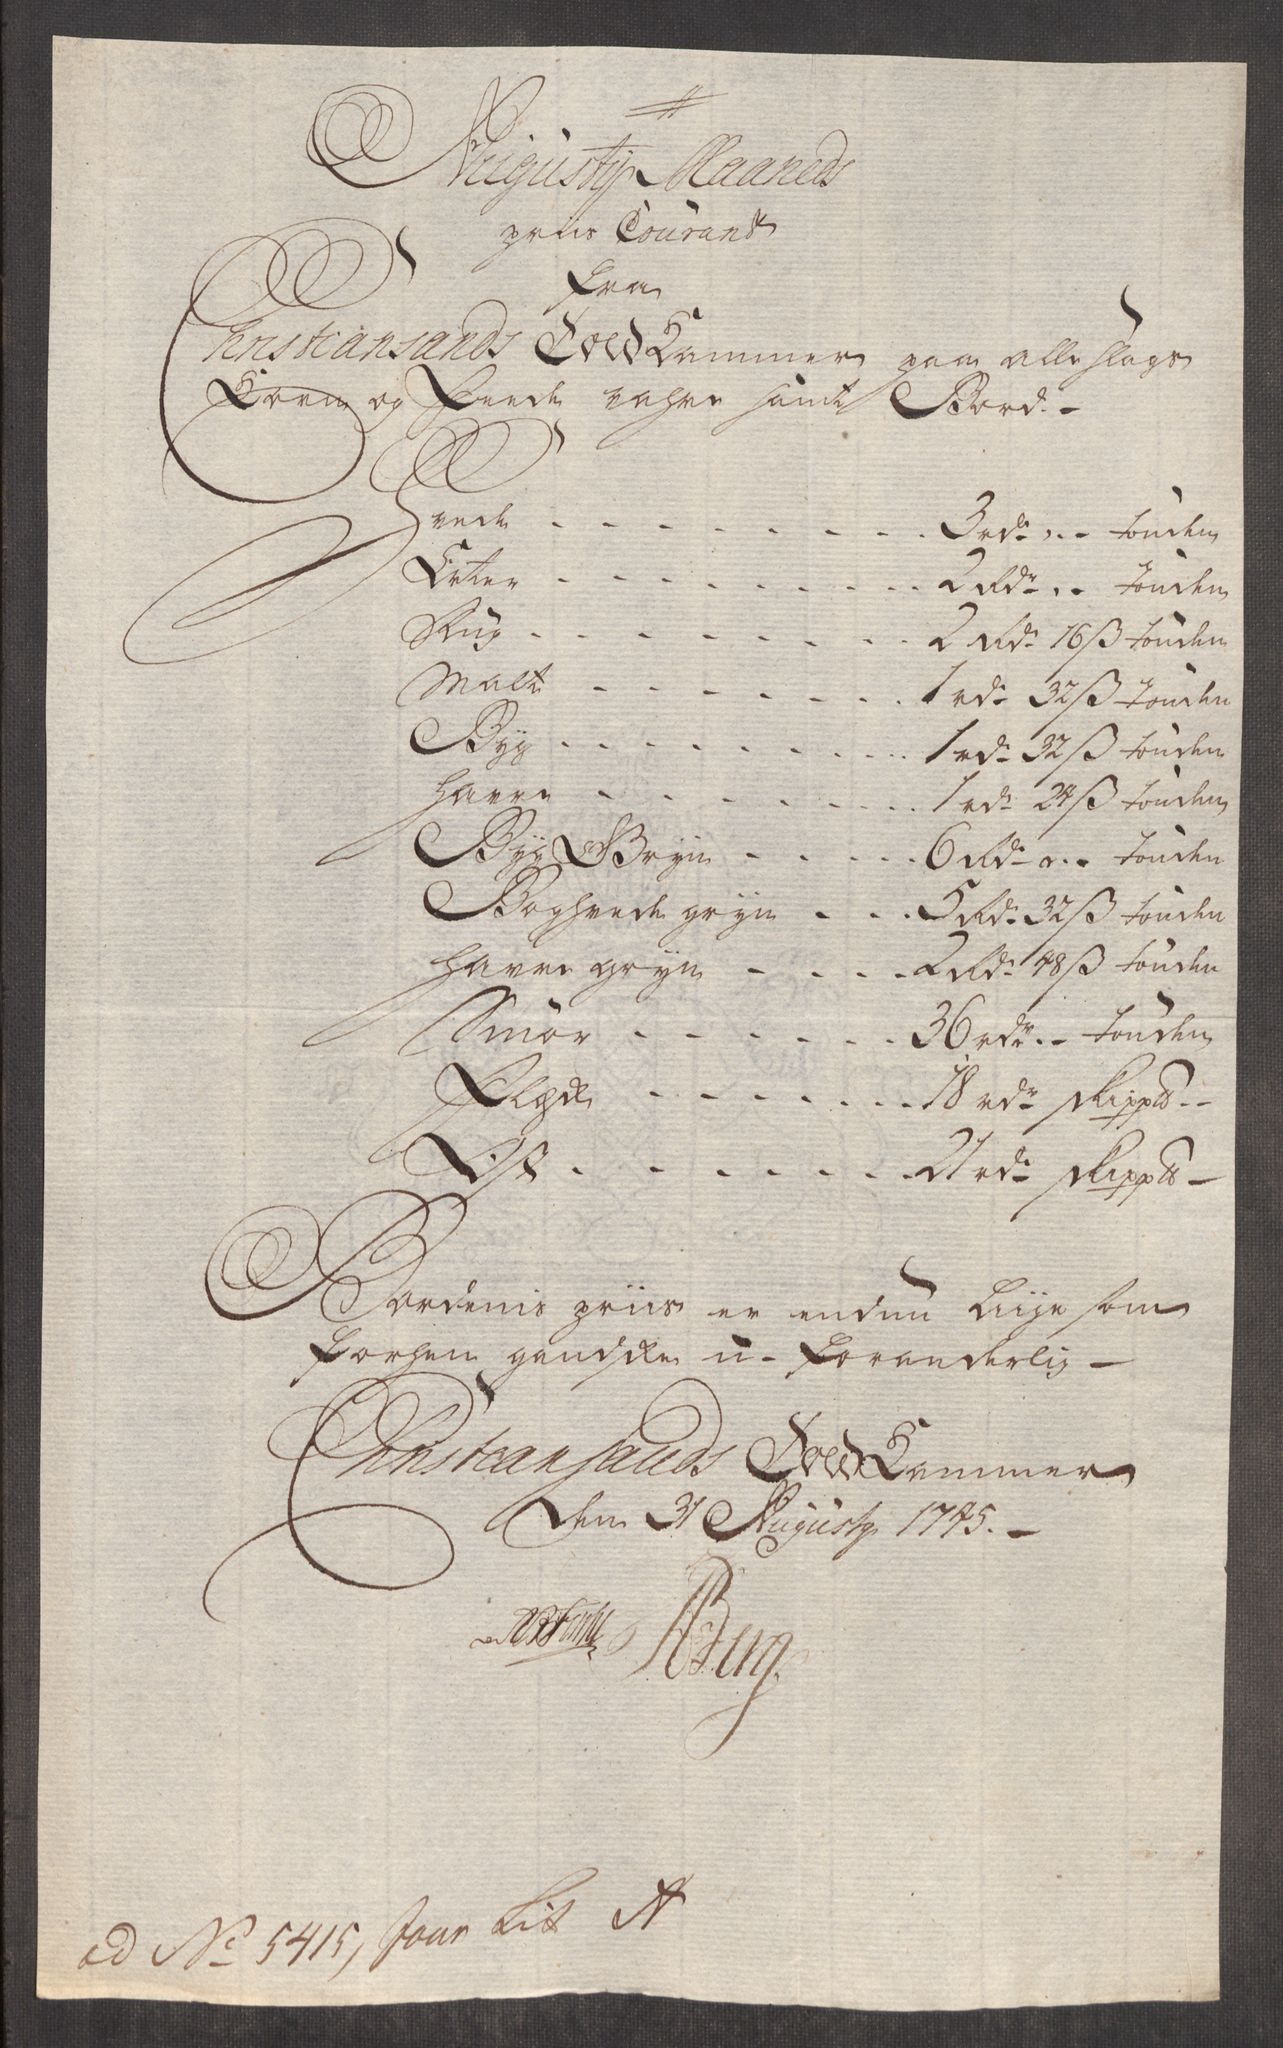 Augusty Maaneds
priis Courant
fra
Christiansands Told Kammer paa alle slags
Korn og Feede vahre samt Bord.
Hvede - - - 3 rdr „ - tønden
Erter - - - 2 Rdr „ - tønden
Rug - - - 2 Rdr 16 ß tønden
Malt - - - 1 rdr 32 ß tønden
Byg - - - 1 rdr 32 ß tønden
Havre - - - 1 rdr 24 ß tønden
Byg Gryn - - - 6 Rdr „ - tønden
Boghvede gryn - - - 5 Rdr 32 ß tønden
Havre gryn - - - 2 Rdr 48 ß tønden
Smør - - - 36 rdr - tønden
Flesk - - - 18 rdr skippd -
Ost - - - 21 rdr skippd -
Bordenis priis er endnu liige som
forhen gandske u-foranderlig -
Christiansands Told Kammer
den 31 Augusty 1745. -
ad No 5415, Jour Lit A